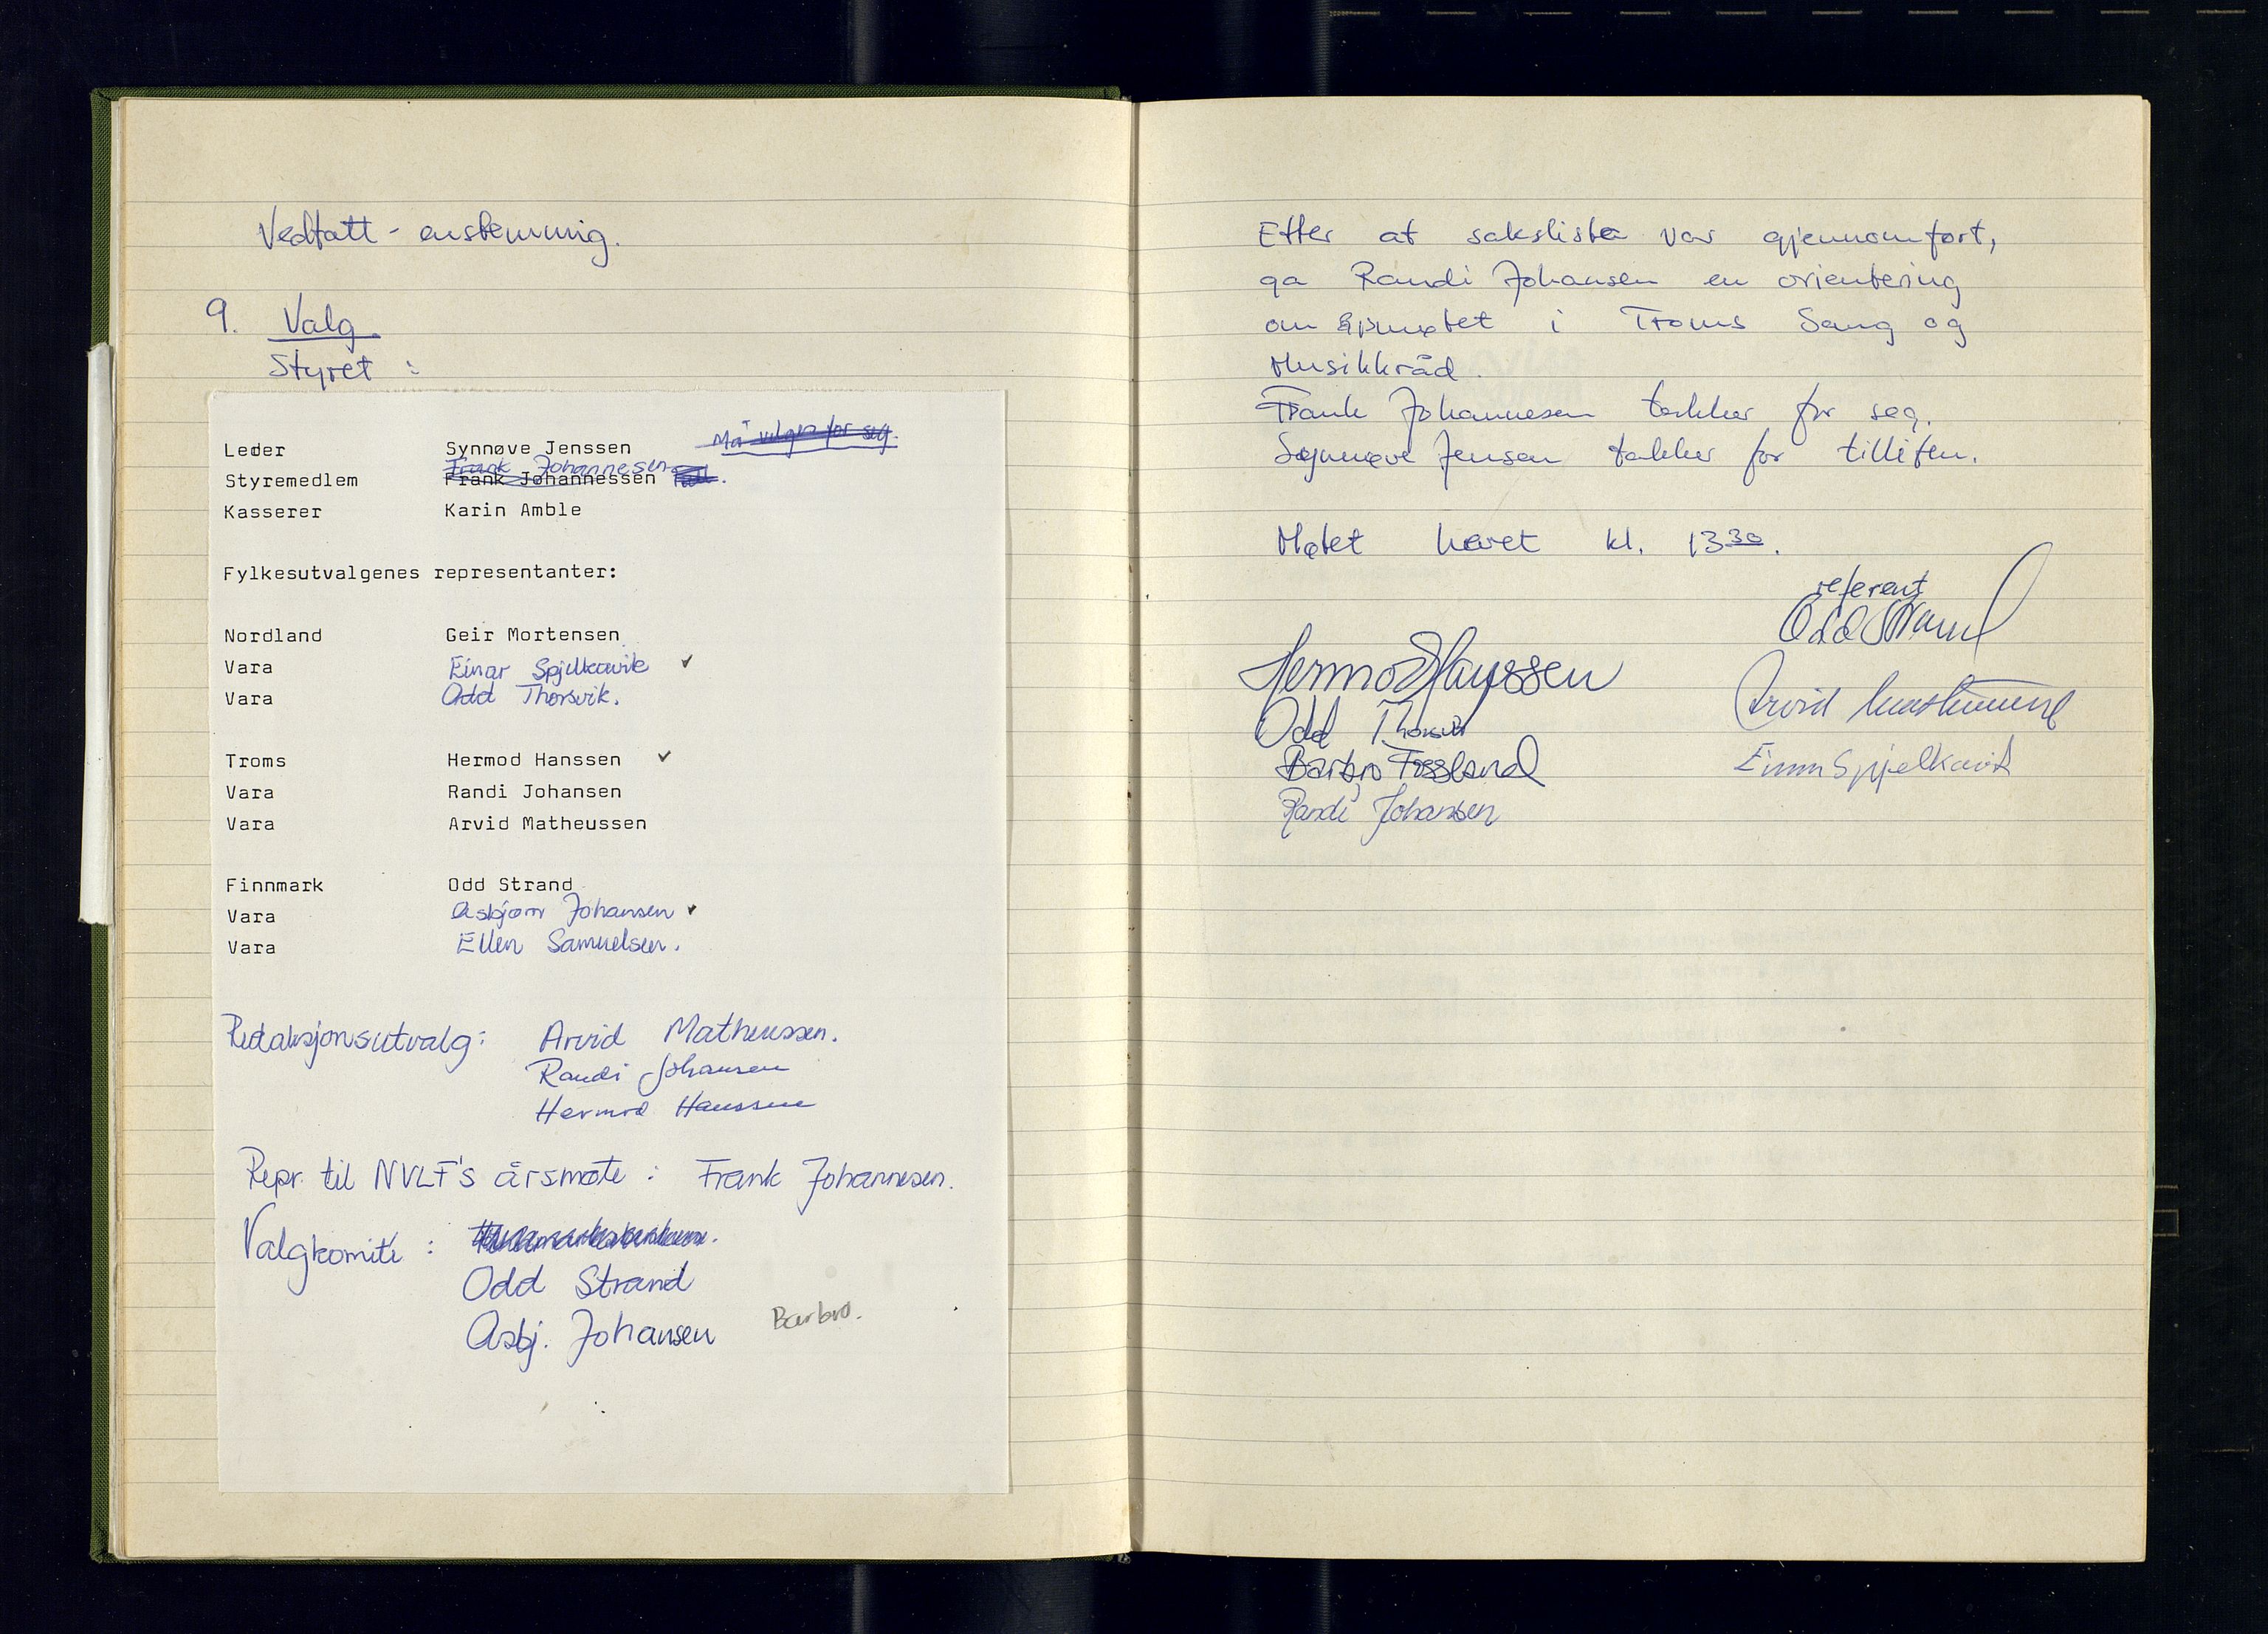 Vedtatt - enstemmig.
9. Valg.
Styret :
Må velges for seg.
Leder Synnøve Jenssen
Frank Johannesen
Styremedlem Frank Johannessen
Kasserer Karin Amble
Fylkesutvalgenes representanter:
Nordland Geir Mortensen
Vara Einar Spjelkavik ✓
Vara Odd Thorsvik.
Troms Hermod Hanssen ✓
Vara Randi Johansen
Vara Arvid Matheussen
Finnmark Odd Strand
Vara Asbjørn Johansen ✓
Vara Ellen Samuelsen.
Redaksjonsutvalg: Arvid Matheussen.
Randi Johansen
Hermod Hanssen
Repr. til NVLF's årsmøte : Frank Johannesen.
Valgkomite :
Odd Strand
Asbj. Johansen Barbro.
Etter at sakslista var gjennomført,
ga Randi Johansen en orientering
om i Troms Sang og
Musikkråd.
Frank Johannesen takker for seg.
Synnøve Jensen takker for tilliten.
Møtet hevet kl. 13 30.
referent
Odd Strand
Hermod Hanssen
Arvid Matheussen
Odd Thorsvik
Barbro Fossland
Einar Spjelkavik
Randi Johansen